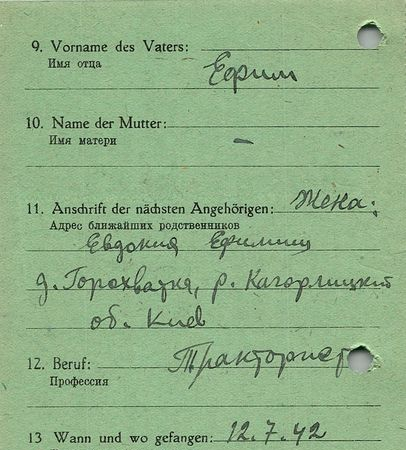 9. Vorname des Vaters:
Имя отца
Ефим
10. Name der Mutter: —
Имя матери
11. Anschrift der nächsten Angehörigen: Жена:
Адрес ближайших родственников
Евдокия
д. Горохватка, р. Кагарлицкий
об. Киев
12. Beruf: Тракторист
Профессия
13 Wann und wo gefangen: 12.7.42